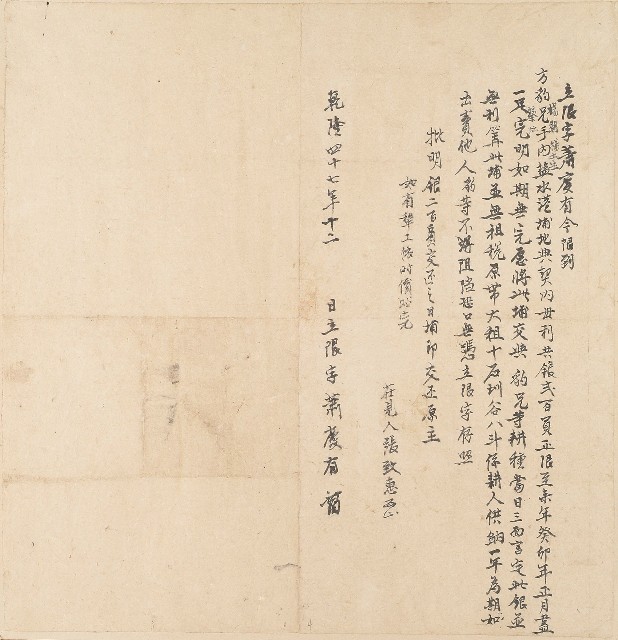 立限字蕭慶有今限到
方豹兄手內鹽水港埔地典契內母利共銀弍百員正限至未年癸卯年正月盡
一足完明如期無完愿將此埔交與 豹兄等耕種當日三面言定此銀並
無利算此埔並無租稅原帶大租十石圳谷八斗係耕人供納一年為期如
出賣他人豹等不得阻擋恐口無憑立限字存照
批明銀二百員交還之日埔卽交還原主
如有築工依時價貼完
在見人張致惠
乾隆四十七年十二 日立限字蕭慶有